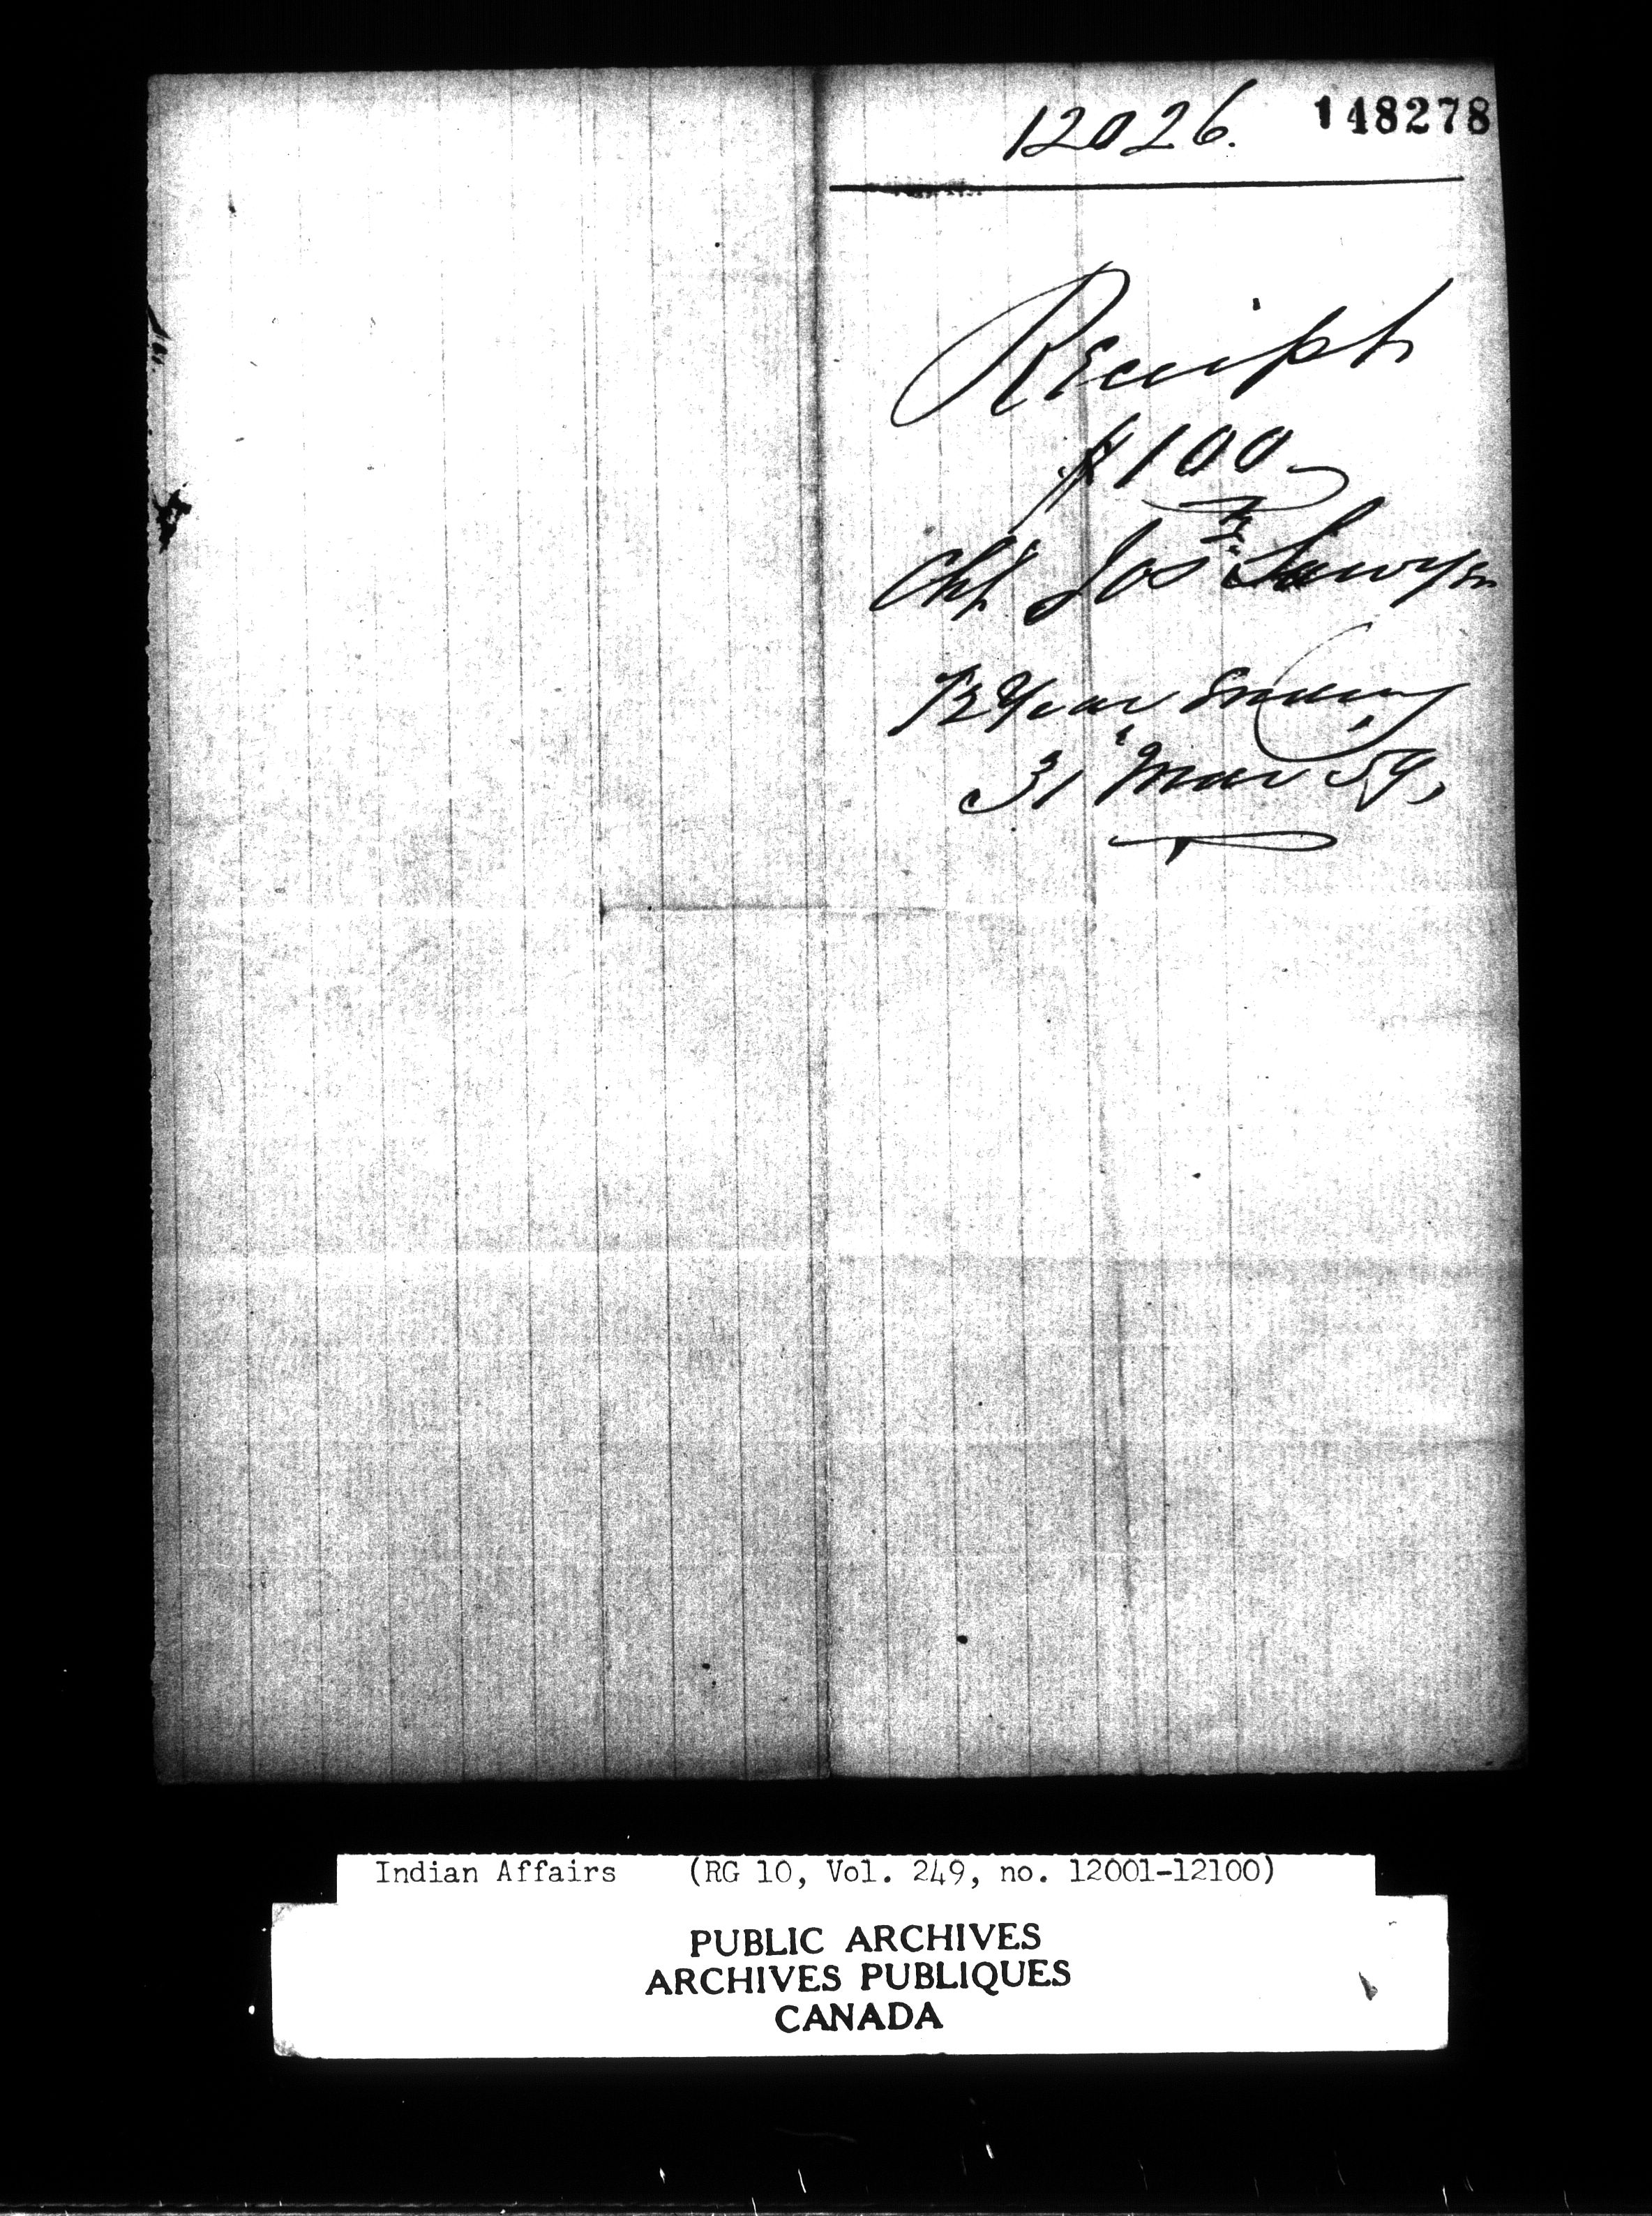 12026. 148278
Receipt
$100
Chf Jos Sawyer
½ Year Ending
31 Mar 59,
Indian Affairs (RG 10, Vol. 249, no. 12001-12100)
PUBLIC ARCHIVES
ARCHIVES PUBLIQUES
CANADA